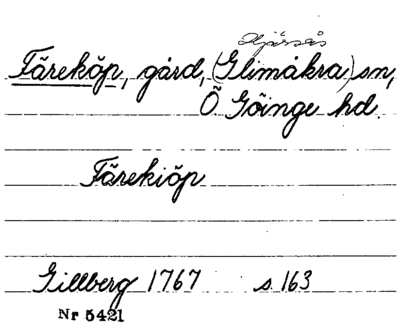 Hjärsås
Färeköp, gård, (Glimåkra) sn,
Ö Göinge hd.
Färekiöp
Gillberg 1767 s 163
Nr 5421